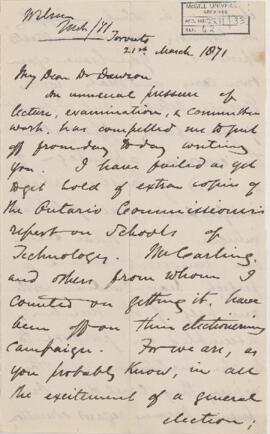 Wilson
Mch/71
McGILL UNIVERSITY
ARCHIVES
ACC. NO.
REF.
Toronto
21st March 1871
My Dear Dr Dawson
An unusual pressure of
lecture, examination, & committee
work, has compelled me to put
off from day to day writing
you. I have failed as yet
to get hold of extra copies of
the Ontario Commissioners
report on Schools of
Technology. McCarling,
and others from whom I
counted on getting it, have
been off on their electioneering
campaign. For we are, as
you probably know, in all
the excitement of a general
election;